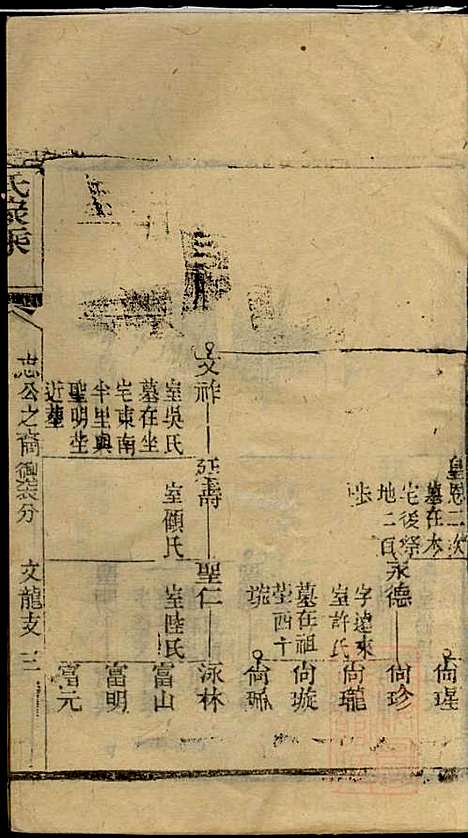 皇恩二次
墓在本
宅後祭
地二百
步
永德
字遠來
室許氏
墓在祖
塋西十
尚珵
尚珍
尚瓏
尚璇
文祚
室吳氏
墓在坐
宅東南
半里與
聖明坐
近塋
延壽
室顧氏
聖仁
室陸氏
泳林
富山
富明
富元
氏家乘
忠公之裔衞裝分
文龍支
三